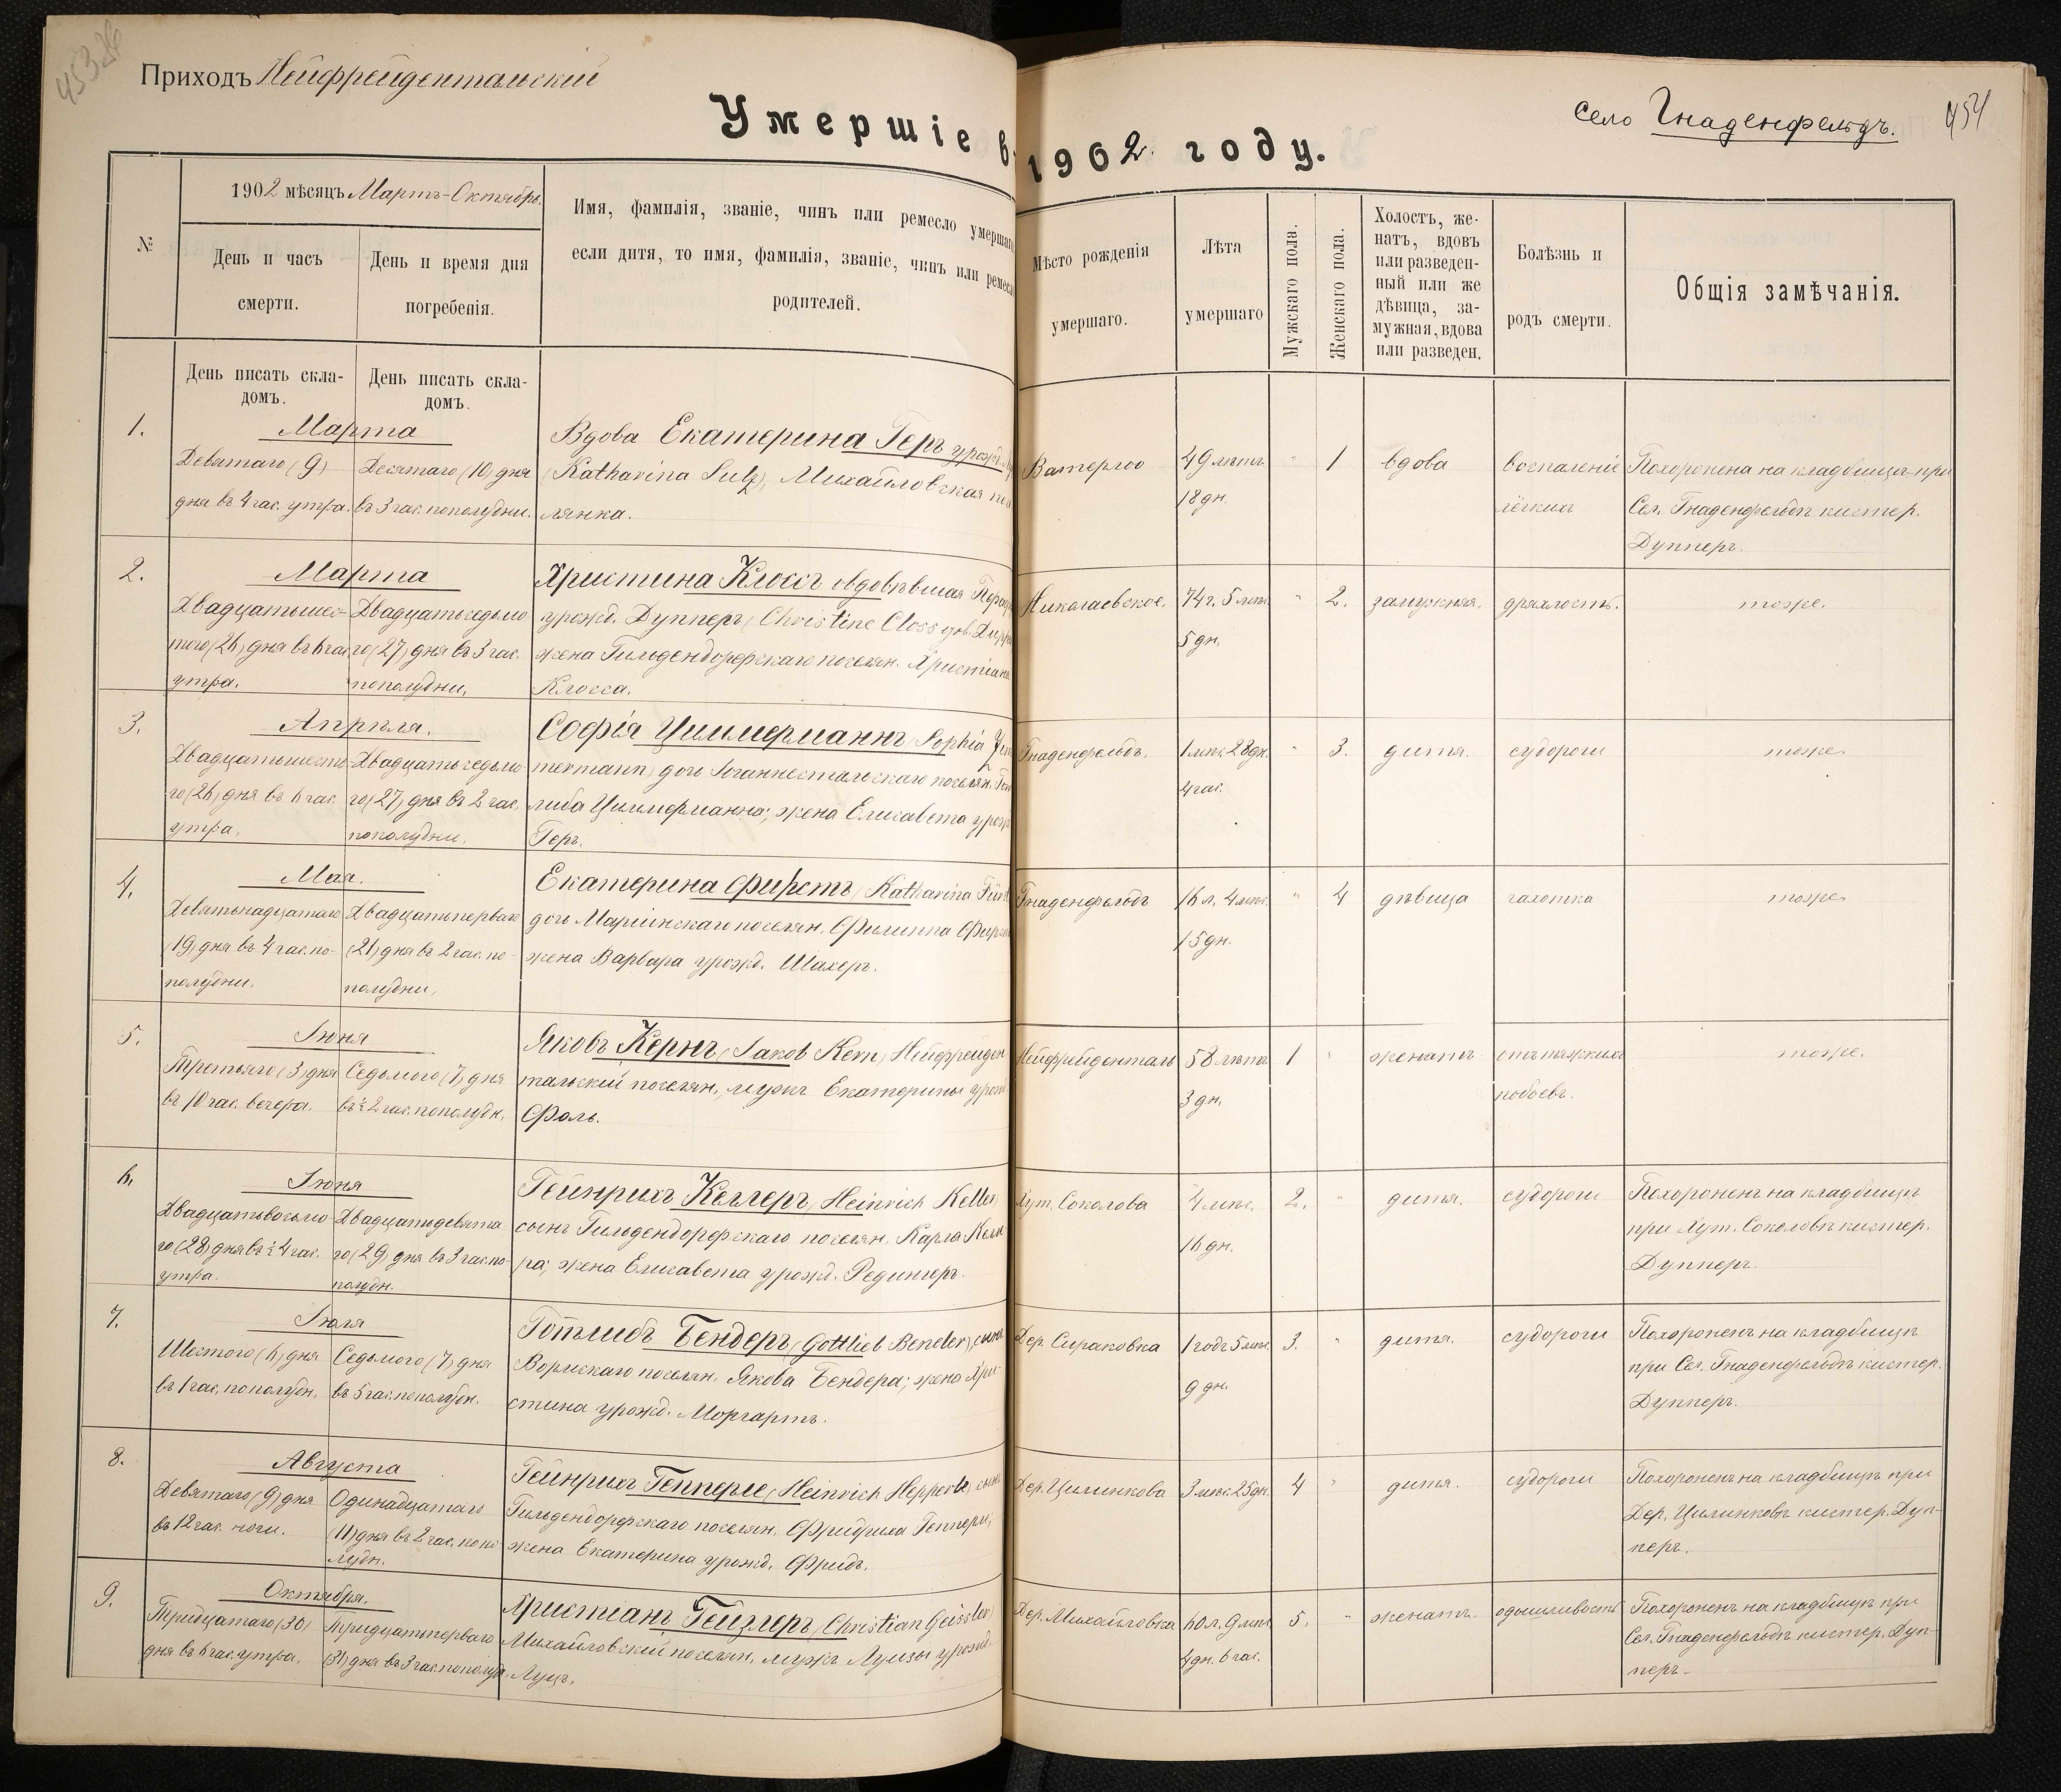 45326
Приходъ Нейфрейдентальскій
Умершіе въ
1902 году.
Село Гнаденфельдъ.
454
№
1902 мѣсяцъ Мартъ-Октябрь.
День и часъ
смерти.
День и время дня
погребенія.
Имя, фамилія, званіе, чинъ или ремесло умершаго
если дитя, то имя, фамилія, званіе, чинъ или ремесло
родителей.
Мѣсто рожденія
умершаго.
Лѣта
умершаго
Мужскаго пола.
Женскаго пола.
Холостъ, же-
натъ, вдовъ
или разведен-
ный или же
дѣвица, за-
мужная, вдова
или разведен.
Болѣзнь и
родъ смерти.
Общія замѣчанія.
День писать скла-
домъ.
День писать скла-
домъ.
1.
Марта
Девятаго (9)
дня въ 4 час. утра.
Десятаго (10) дня
въ 3 час. пополудни.
Вдова Екатерина Геръ урожд.
(Katharina Lutz), Михайловская посе
лянка.
Ватерлоо
49 лѣтъ
18 дн.
"
1
вдова
воспаленіе
лёгкихъ
Похоронена на кладбищѣ при
Сел. Гнаденфельдѣ кистер.
Дупперъ.
2.
Марта
Двадцатьшес-
того (26) дня въ 6 час.
утра.
Двадцатьседьмо
го (27) дня въ 3 час.
пополудни.
Христина Клоссъ овдовѣвшая
урожд. Дупперъ (Christine Closs
жена Гильдендорфскаго поселян. Христіана
Клосса.
Николаевское.
74 г. 5 мѣс.
5 дн.
"
2.
замужняя.
дряхлость.
тоже.
3.
Апрѣля.
Двадцатьшесто
го (26) дня въ 6 час.
утра.
Двадцатьседьмо
го (27) дня въ 2 час.
пополудни.
Софія Циммерманнъ (Sophia Zim
mermann) дочь Іоганнестальскаго поселян. Гот
либа Циммерманна; жена Елисавета урожд
Геръ.
Гнаденфельдъ.
1 мѣс. 28 дн.
4 час.
"
3.
дитя.
судороги
тоже.
4.
Мая.
Девятьнадцатаго
(19) дня въ 4 час. по-
полудни.
Двадцатьперваго
(21) дня въ 2 час. по-
полудни.
Екатерина Фирстъ (Katharina Fürst
дочь Маріинскаго поселян. Филиппа Фирст
жена Варвара урожд. Шахеръ.
Гнаденфельдъ
16 л. 4 мѣс.
15 дн.
"
4
дѣвица
чахотка
тоже.
5.
Іюня
Третьяго (3) дня
въ 10 час. вечера.
Седьмого (7) дня
въ ½ 2 час. пополудн.
Яковъ Кернъ (Jakob Kern) Нейфрейден
тальскій поселян., мужъ Екатерины урожд
Фоль.
Нейфрейденталь
58 лѣтъ
3 дн.
1
"
женатъ
отъ тяжкихъ
побоевъ.
тоже.
6.
Іюня
Двадцатьвосьмо
го (28) дня въ ½ 4 час.
утра.
Двадцатьдевята
го (29) дня въ 3 час. по-
полудн.
Гейнрихъ Келлеръ (Heinrich Keller)
сынъ Гильдендорфскаго поселян. Карла Келле
ра; жена Елисавета урожд. Редингеръ.
Хут. Соколова
4 мѣс.
16 дн.
2.
"
дитя.
судороги
Похороненъ на кладбищѣ
при Хут. Соколовѣ кистер.
Дупперъ.
7.
Іюля
Шестого (6) дня
въ 1 час. пополудн.
Седьмого (7) дня
въ 5 час. пополудн.
Готлибъ Бендеръ (Gottlieb Bender), сынъ
Вормскаго поселян. Якова Бендера; жена Хри-
стина урожд. Моргартъ.
Дер. Сираковка
1 годъ 5 мѣс.
9 дн.
3.
"
дитя.
судороги
Похороненъ на кладбищѣ
при Сел. Гнаденфельдѣ кистер.
Дупперъ.
8.
Августа
Девятаго (9) дня
въ 12 час. ночи.
Одинадцатаго
(11) дня въ 2 час. попо
лудн.
Гейнрихъ Гепперле (Heinrich Hepperle) сынъ
Гильдендорфскаго поселян. Фридриха Гепперле;
жена Екатерина урожд. Фридъ.
Дер. Цилинкова
3 мѣс. 25 дн.
4
"
дитя.
судороги
Похороненъ на кладбищѣ при
Дер. Цилинковѣ кистер. Дуп-
перъ.
9.
Октября.
Тридцатаго (30)
дня въ 6 час. утра.
Тридцатьперваго
(31) дня въ 3 час. пополудн.
Христіанъ Гейзлеръ (Christian Geissler)
Михайловскій поселян., мужъ Луизы урожд.
Луцъ.
Дер. Михайловка
60 л. 9 мѣс.
4 дн. 6 час.
5.
"
женатъ.
одышливость
Похороненъ на кладбищѣ при
Сел. Гнаденфельдѣ кистер. Дуп-
перъ.